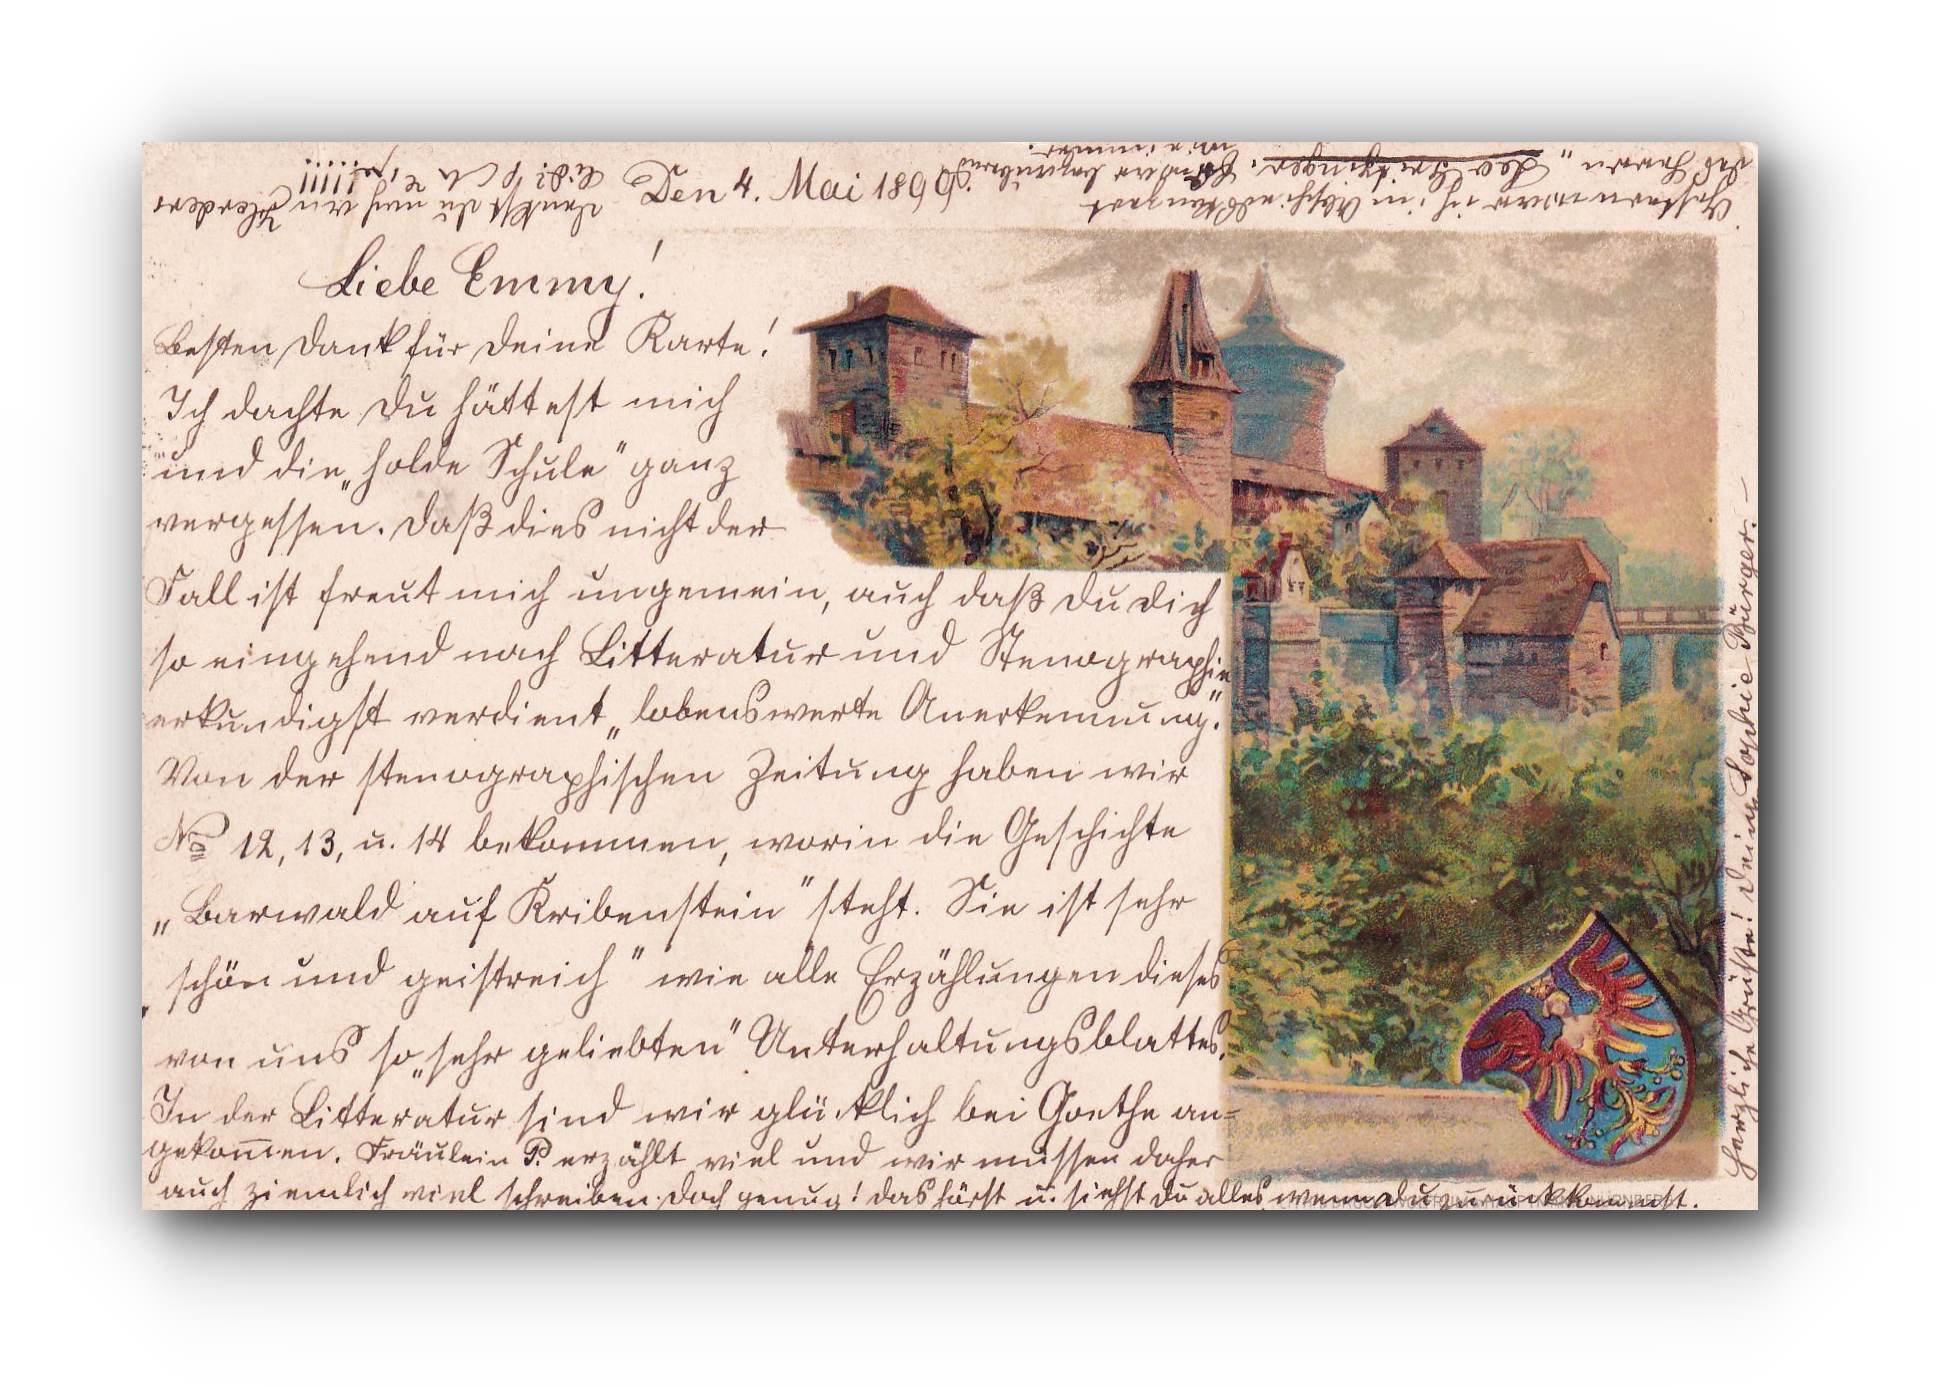 Den 4. Mai 1899.
Liebe Emmy!
Besten Dank für deine Karte!
Ich dachte du hättest mich
und die „holde Schule" ganz
vergessen. Daß dies nicht der
Fall ist freut mich ungemein, auch daß du dich
so eingehend nach Litteratur und Stenographie
erkundigst verdient „lobenswerte Anerkennung."
Von der stenographischen Zeitung haben wir
12, 13, u. 14 bekommen, worin die Geschichte
„Barwald auf Kribenstein" steht. Sie ist sehr
„schön und geistreich" wie alle Erzählungen dieses
von uns so „sehr geliebten" Unterhaltungsblattes.
In der Litteratur sind wir glücklich bei Goethe an=
gekom̅en. Fräulein P. erzählt viel und wir müssen daher
auch ziemlich viel schreiben. Doch genug! das hörst u. siehst du alles, wenn du zurückkommst.
Herzliche Grüße! Deine Sophie Bürger. —
Gestern war ich im Abschiedskonzert
des Herrn „Leo Gritzinger.
wie immer.
Denkst du noch an
!!!!!